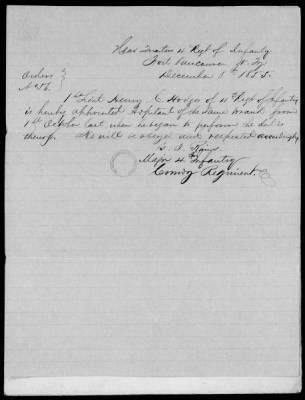 Head Quarters 4 Regt of Infantry
Fort Vancouver W. Ty
December 8th 1855.
Orders
No 56
1st Lieut Henry C. Hodges of 4th Regt of Infantry
is hereby appointed Adjutant of the same from
1st October last when he began to perform the duties
thereof. He will be obeyed and respected accordingly
G. J. Rains
Major 4 Infantry
Comdg Regiment.